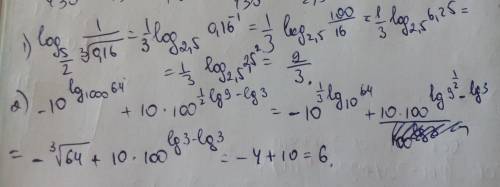 1) log_{5/2} 1/∛0,16 = 1/3 log_{2,5} 0,16^{-1} = 1/3 log_{2,5} 100/16 = 1/3 log_{2,5} 6,25 =
= 1/3 log_{2,5} 2,5^2 = 2/3.
2) -10^{lg_{1000} 64} + 10·100^{1/2 lg9 - lg3} = -10^{1/3 lg_{10} 64} + 10·100^{lg 9^{1/2} - lg3}
= -∛64 + 10·100^{lg3 - lg3} = -4 + 10 = 6.